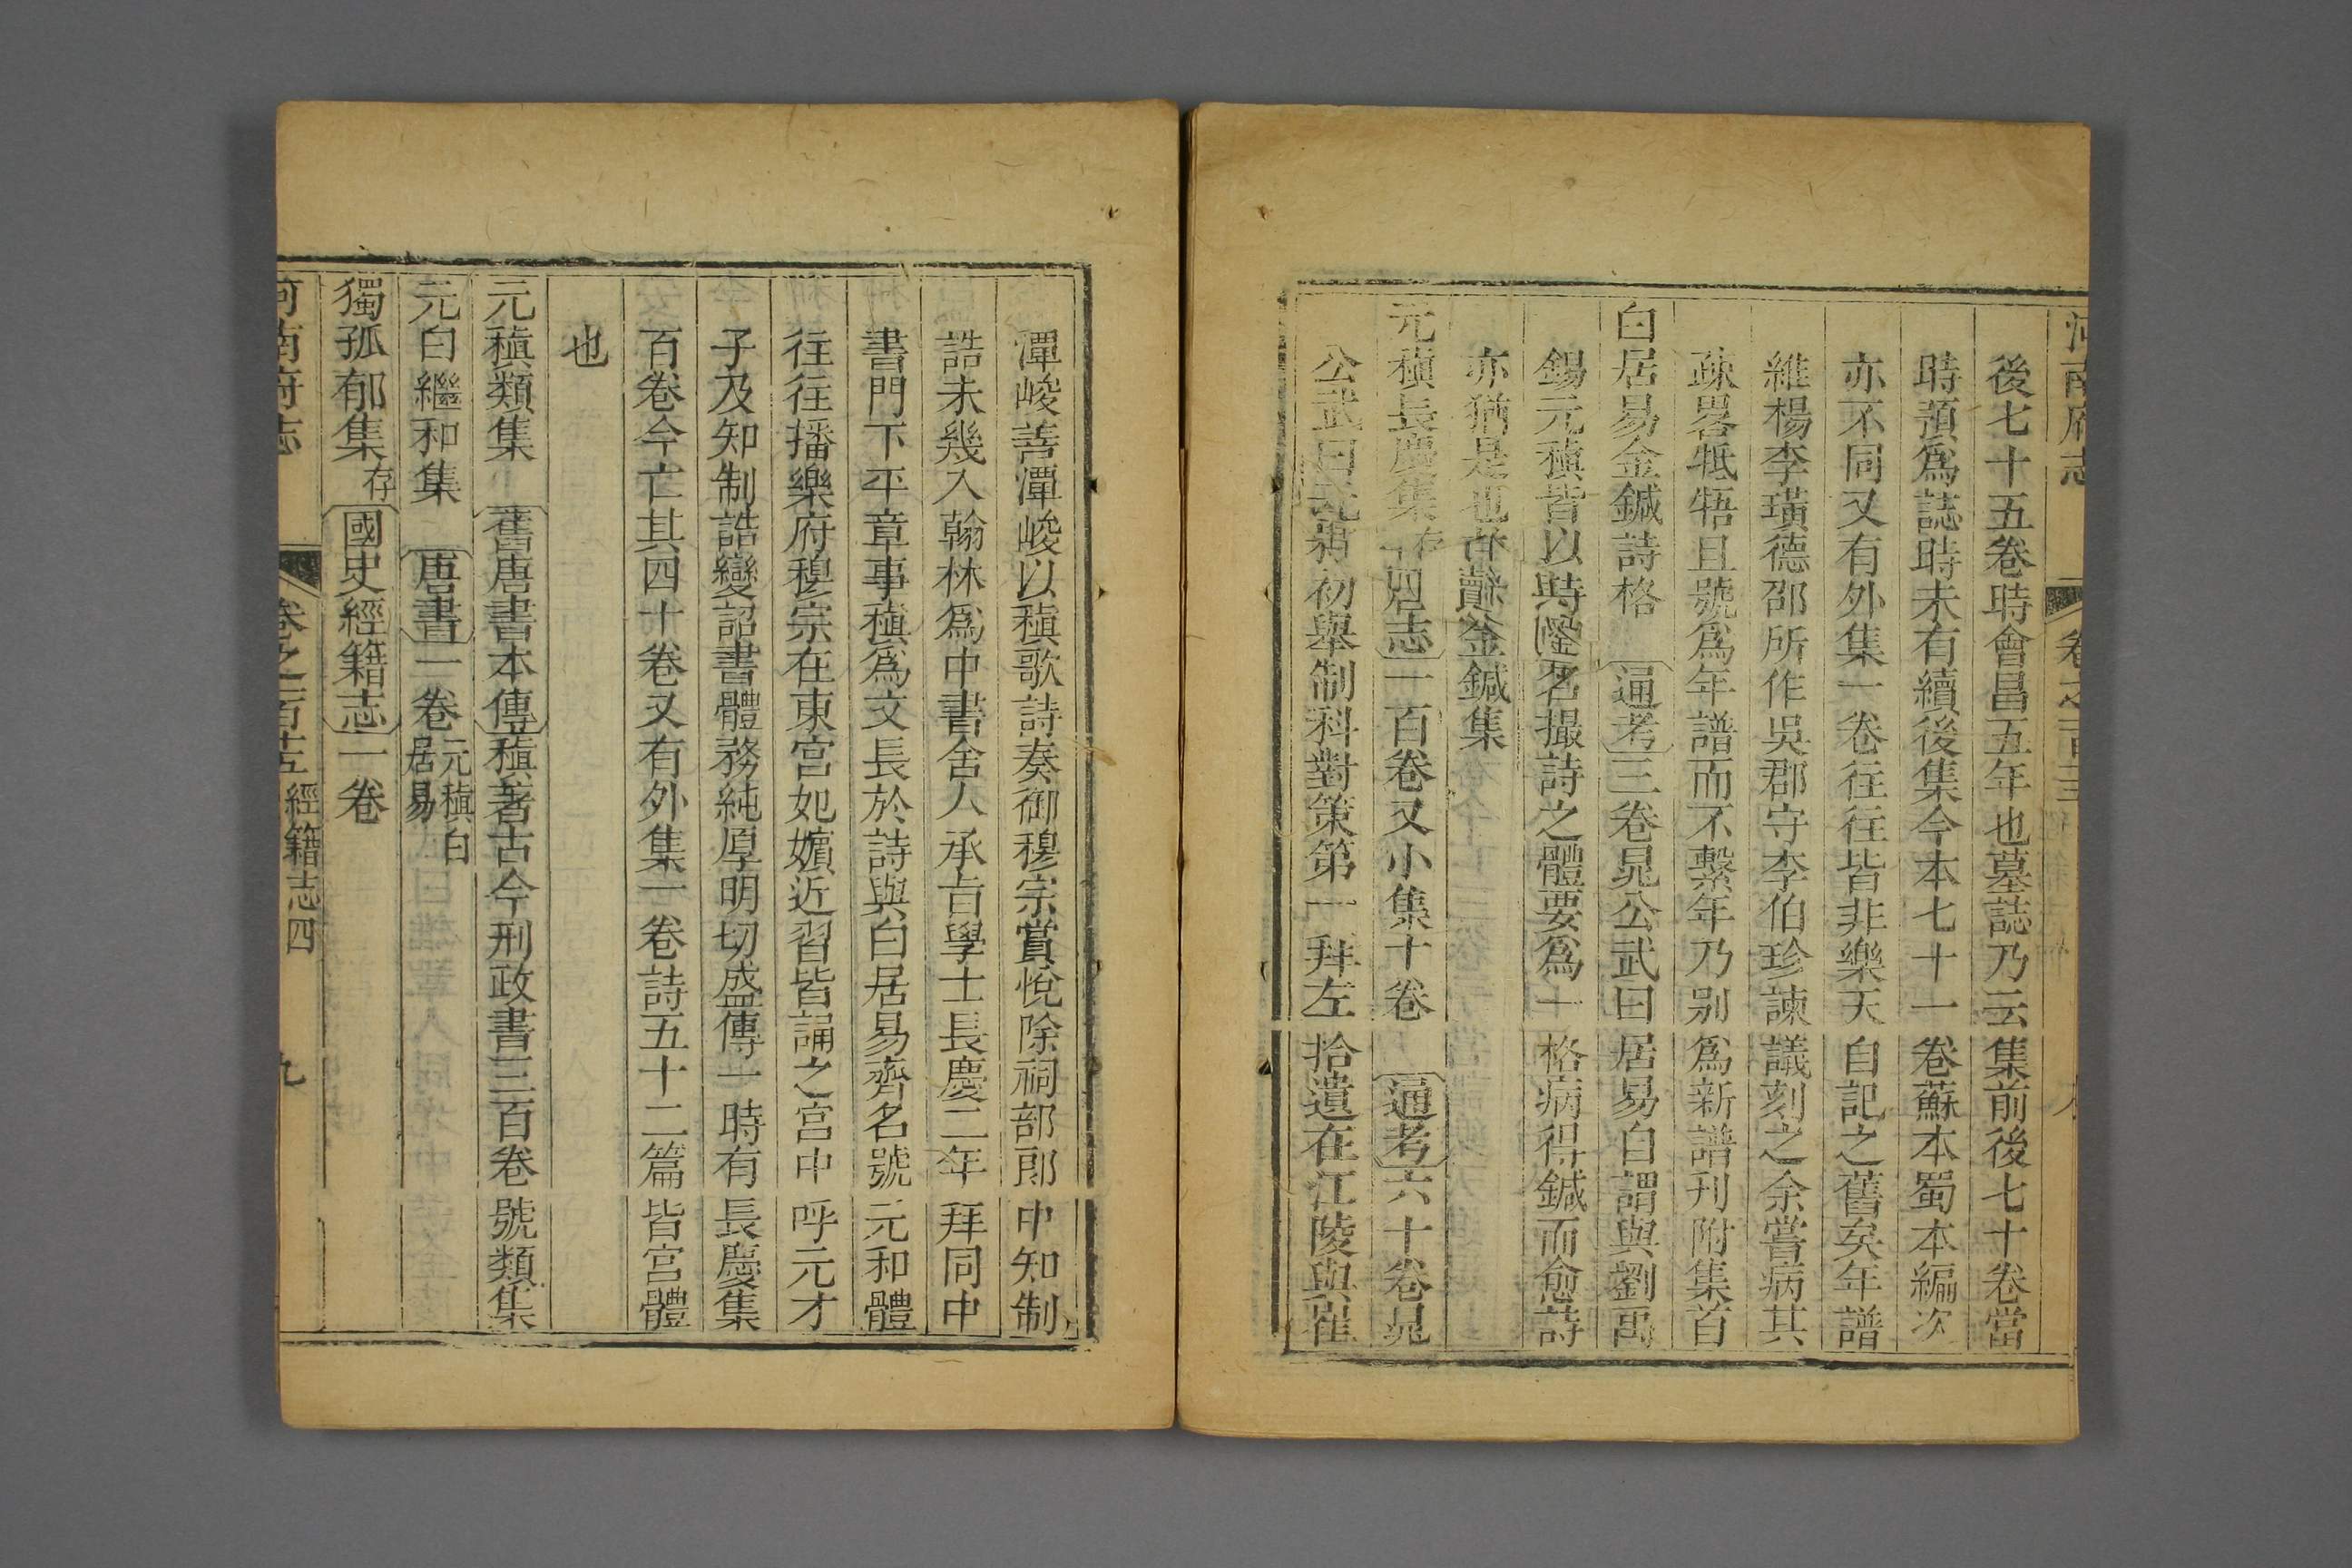 河南府志 卷之一百
後七十五卷時會昌五年也墓誌乃云集前後七十卷當
時預爲誌時未有續後集今本七十一卷蘇本蜀本編次
亦不同又有外集一卷往往皆非樂天自記之舊矣年譜
維楊李璜德邵所作吳郡守李伯珍諫議刻之余嘗病其
疎畧牴牾且號爲年譜而不繫年乃别爲新譜刊附集首
白居易金鍼詩格 通考三卷晁公武曰居易自謂與劉禹
錫元稹皆以時名撮詩之體要爲一格病得鍼而愈詩
亦猶是也故曰金鍼集
元稹長慶集存 唐志一百卷又小集十卷 通考六十卷晁
公武曰元稹初舉制科對策第一拜左拾遺在江陵與崔
潭峻善潭峻以稹歌詩奏御穆宗賞悅除祠部郎中知制
誥未幾入翰林爲中書舍人承旨學士長慶二年拜同中
書門下平章事稹爲文長於詩與白居易齊名號元和體
往往播樂府穆宗在東宮妃嬪近習皆誦之宮中呼元才
子及知制誥變詔書體務純厚明切盛傳一時有長慶集
百卷今亡其四十卷又有外集一卷詩五十二篇皆宮體
也
元稹類集 舊唐書本傳稹著古今刑政書三百卷號類集
元白繼和集 唐書一卷元稹白居易
獨孤郁集存 國史經籍志一卷
河南府志 卷之一百五 經籍志四 九